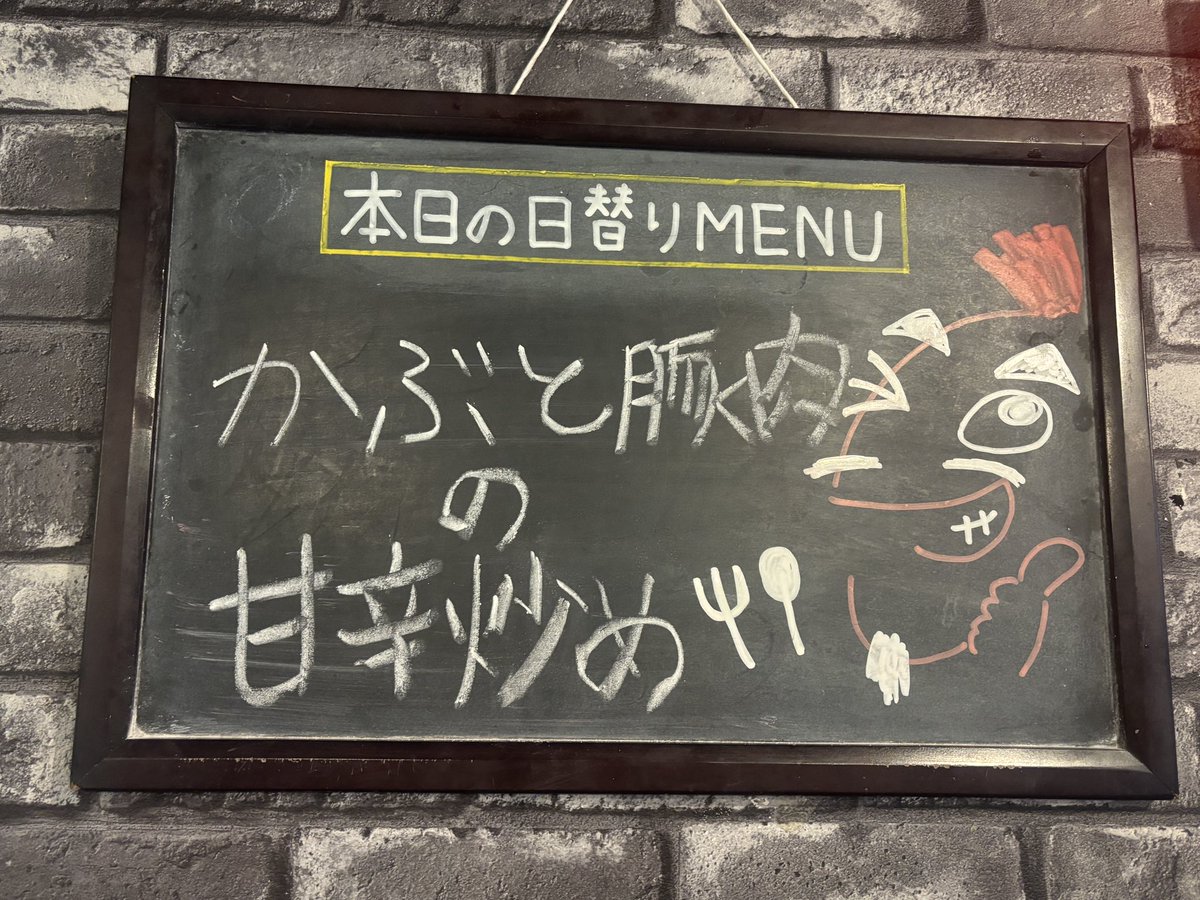 本日の日替りMENU
かぶと豚肉
の
甘辛炒め